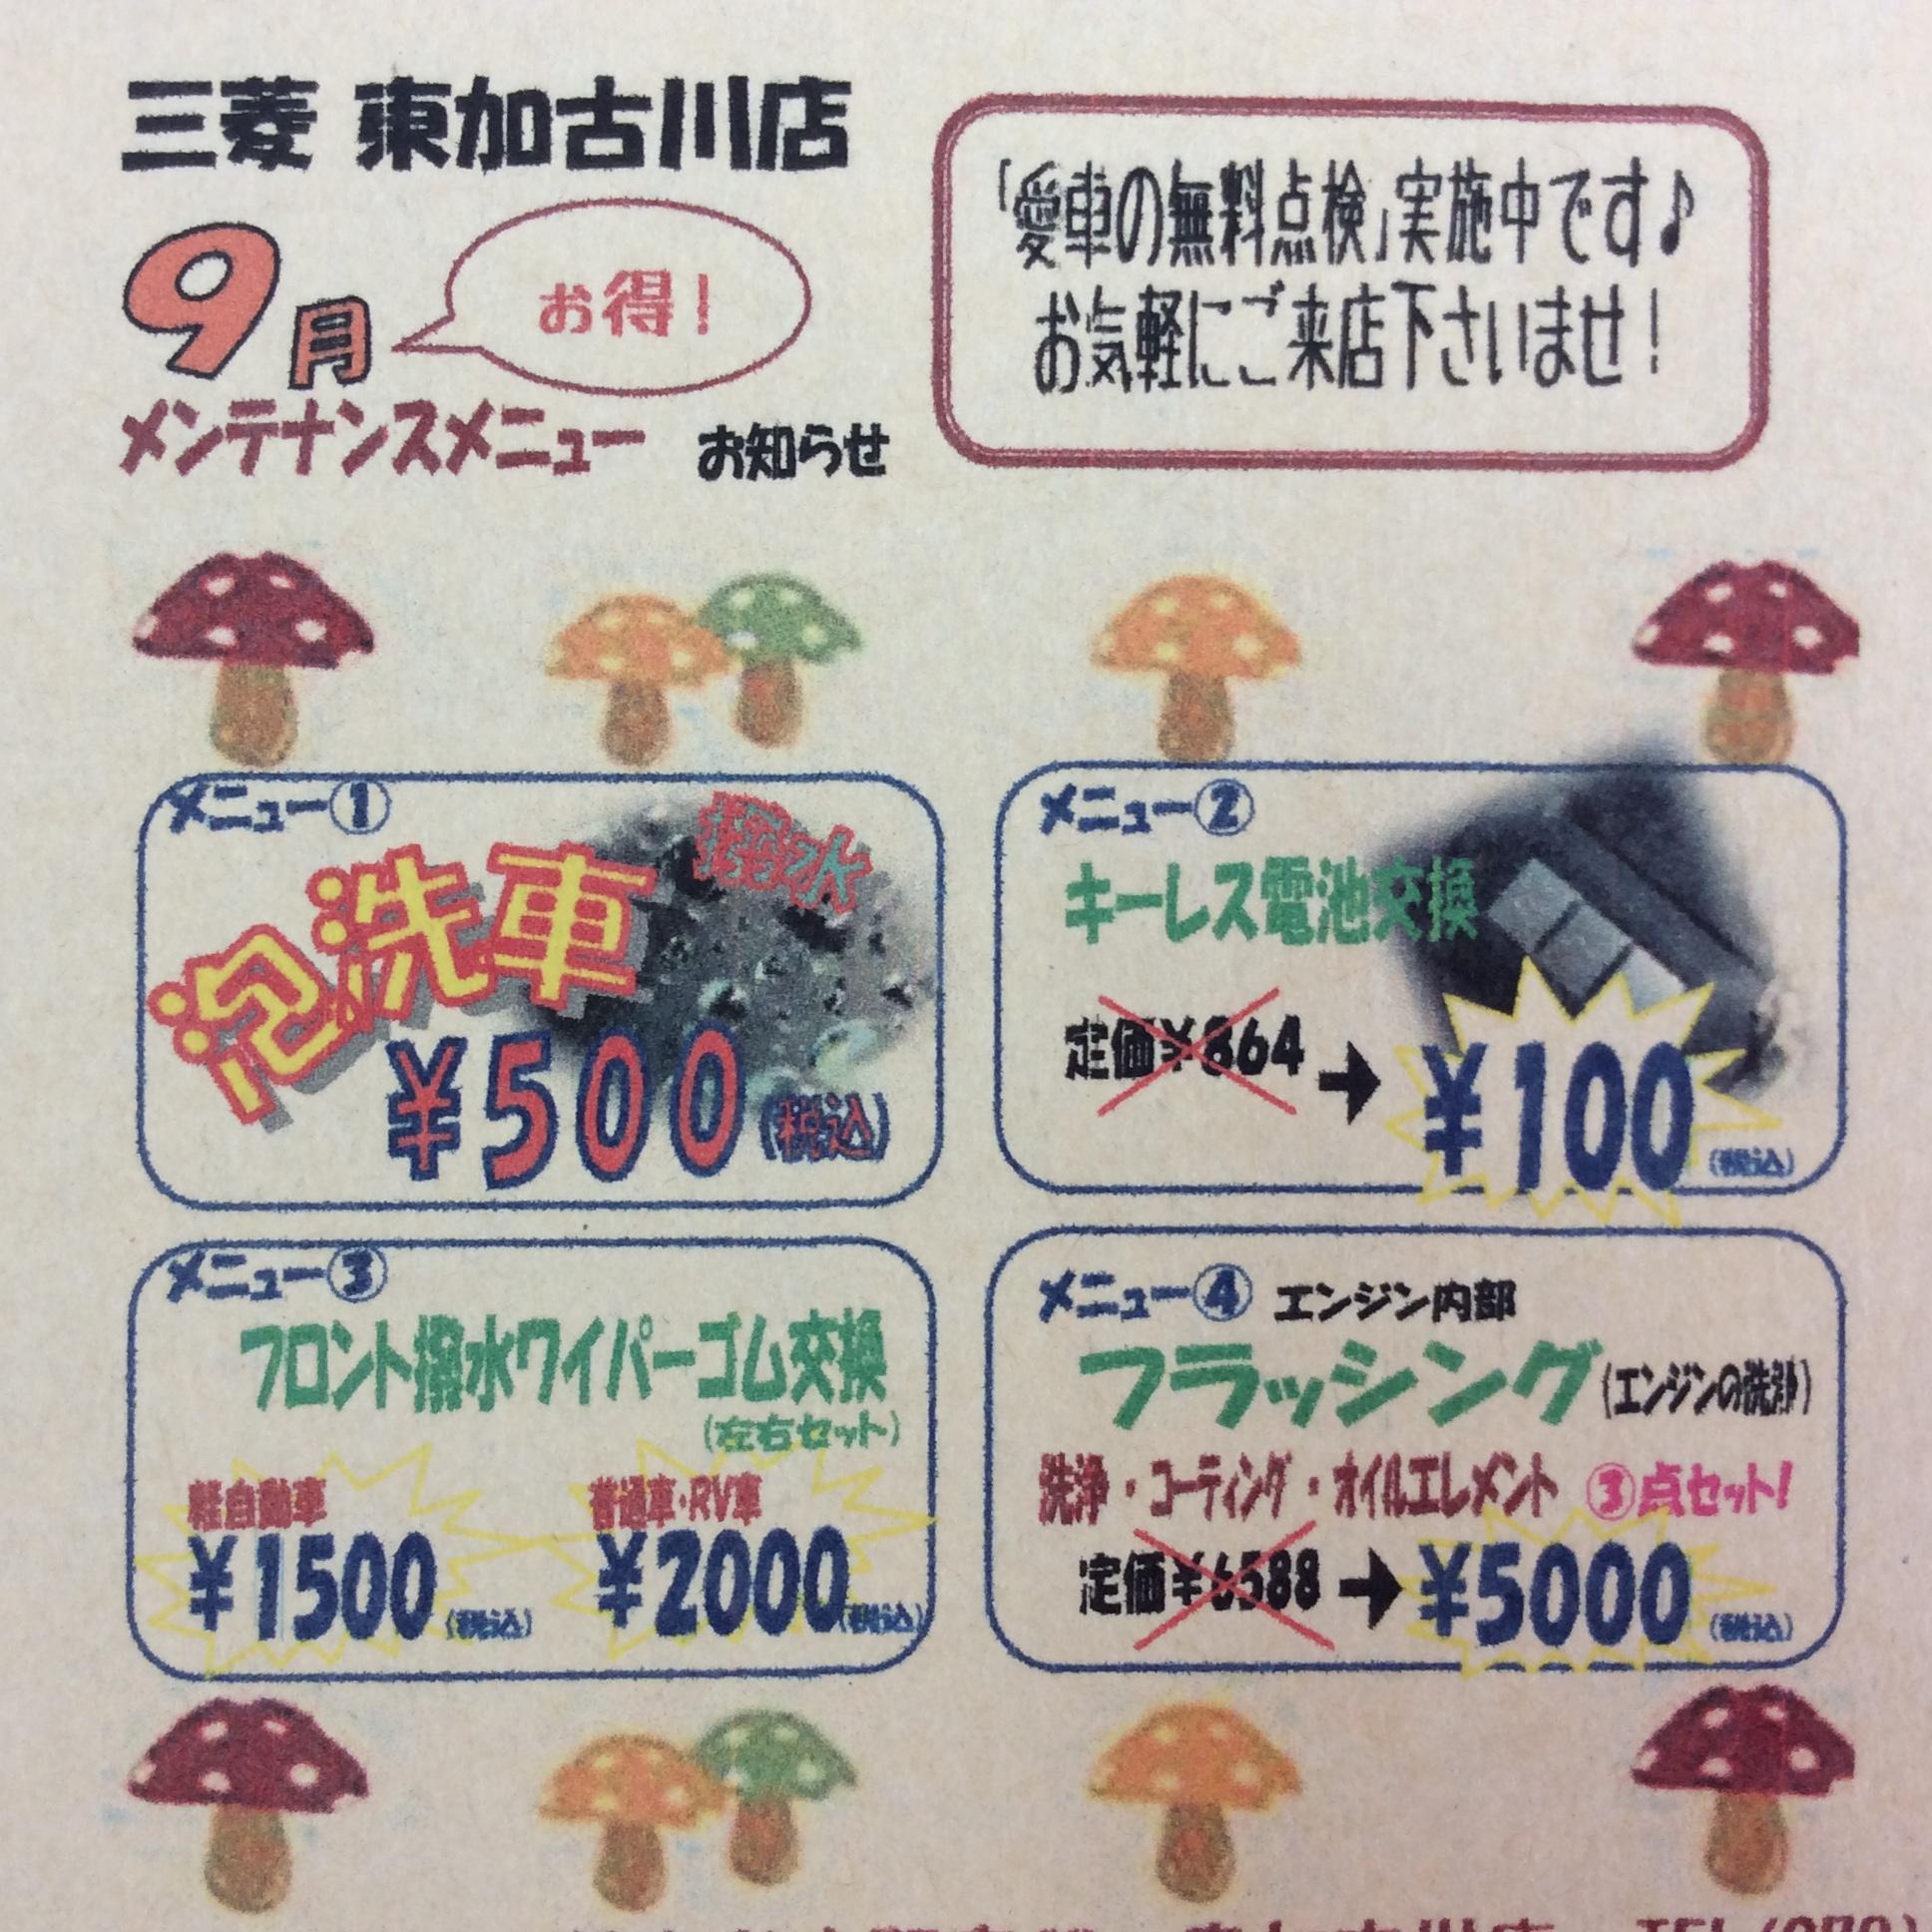 三菱 東加古川店
9月
お得！
メンテナンスメニュー お知らせ
「愛車の無料点検」実施中です♪
お気軽にご来店下さいませ！
メニュー①
撥水
泡洗車
¥500(税込)
メニュー②
キーレス電池交換
定価¥864→¥100(税込)
メニュー③
フロント撥水ワイパーゴム交換
(左右セット)
軽自動車
¥1500(税込)
普通車・RV車
¥2000(税込)
メニュー④ エンジン内部
フラッシング(エンジンの洗浄)
洗浄・コーティング・オイルエレメント ③点セット!
定価¥6588→¥5000(税込)